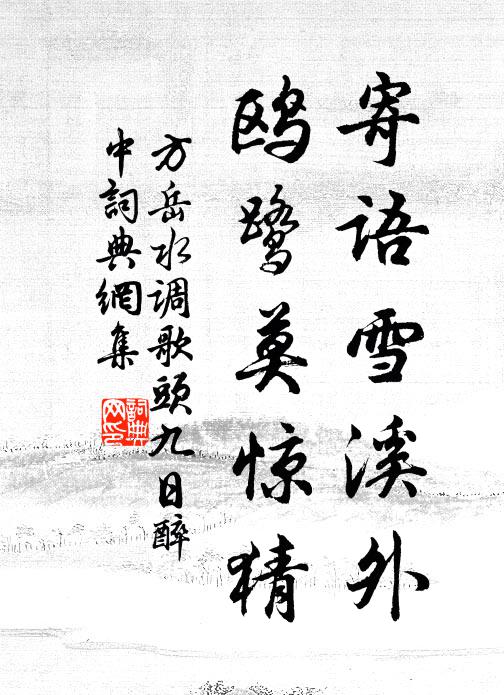 寄语雪溪外
鸥鹭莫惊猜
方岳水调歌头九日醉
中詞典網集
詞典网印